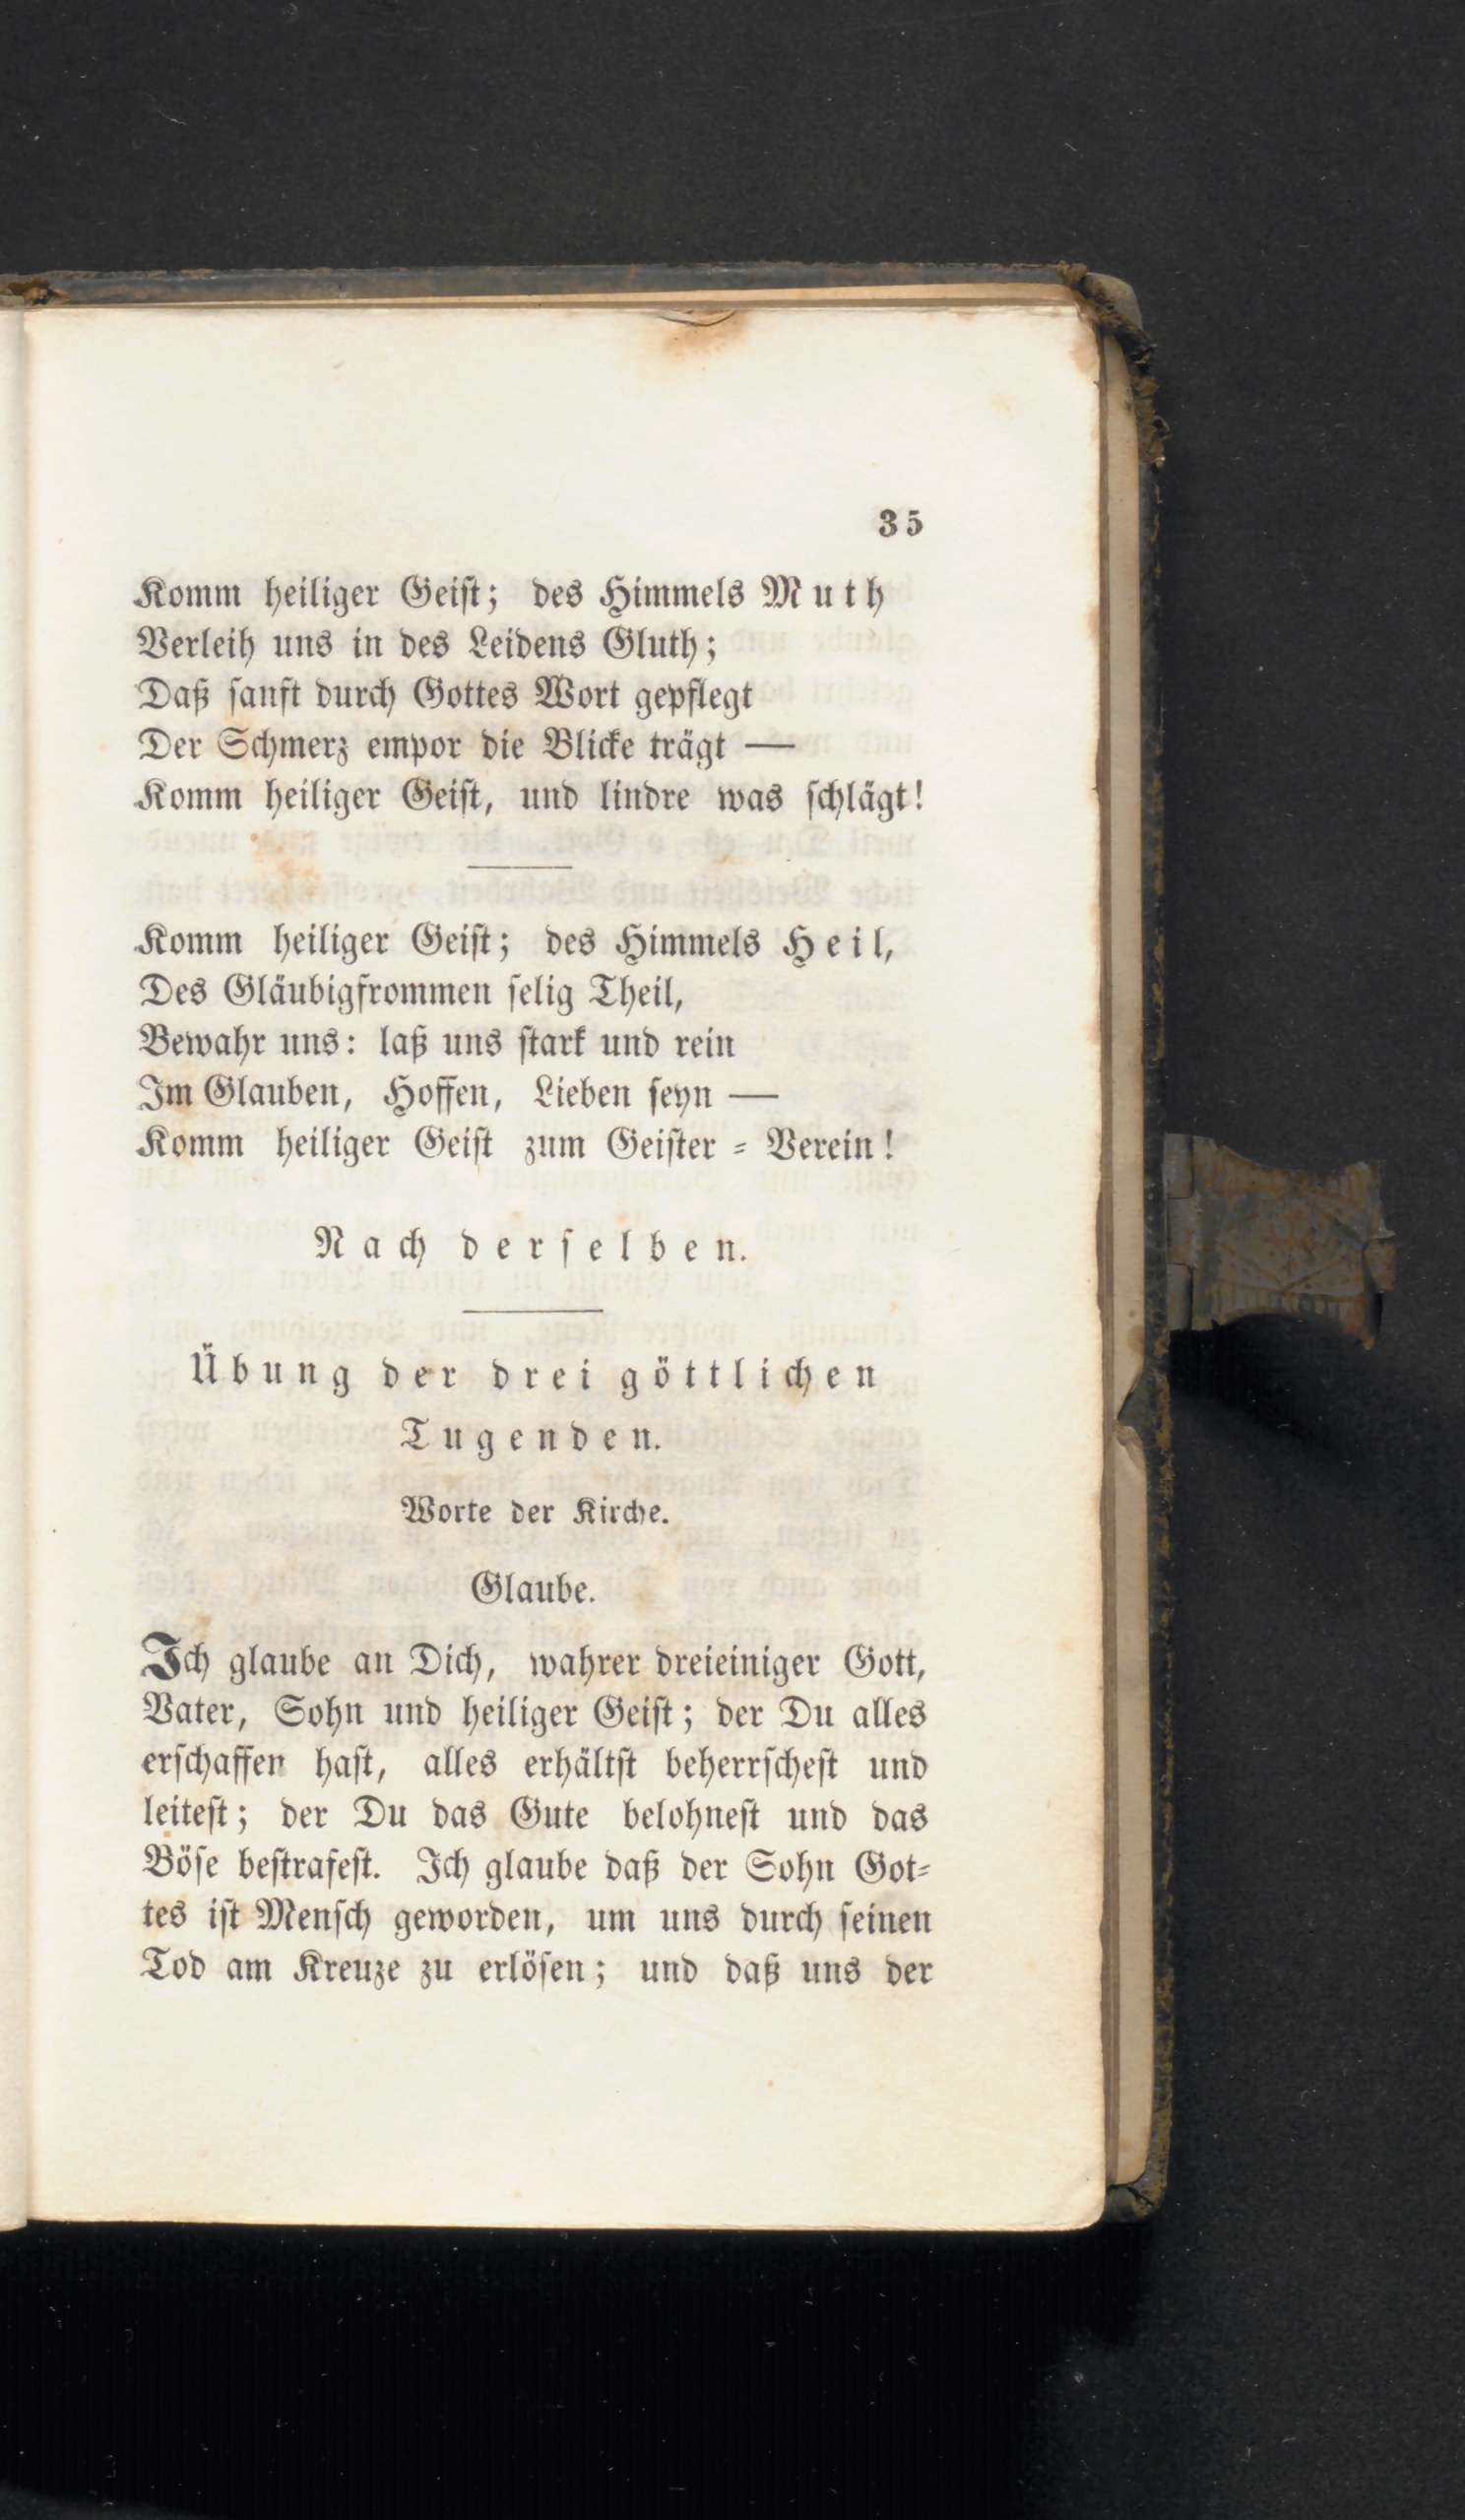 35
Komm heiliger Geiſt; des Himmels Muth
Verleih uns in des Leidens Gluth;
Daß ſanft durch Gottes Wort gepflegt
Der Schmerz empor die Blicke trägt —
Komm heiliger Geiſt, und lindre was ſchlägt!
Komm heiliger Geiſt; des Himmels Heil,
Des Gläubigfrommen ſelig Theil,
Bewahr uns: laß uns ſtark und rein
Im Glauben, Hoffen, Lieben ſeyn —
Komm heiliger Geiſt zum Geiſter ⸗ Verein!
Nach derſelben.
Übung der drei göttlichen
Tugenden.
Worte der Kirche.
Glaube.
Ich glaube an Dich, wahrer dreieiniger Gott,
Vater, Sohn und heiliger Geiſt; der Du alles
erſchaffen haſt, alles erhältſt beherrſcheſt und
leiteſt; der Du das Gute belohneſt und das
Böſe beſtrafeſt. Ich glaube daß der Sohn Got⸗
tes iſt Menſch geworden, um uns durch ſeinen
Tod am Kreuze zu erlöſen; und daß uns der